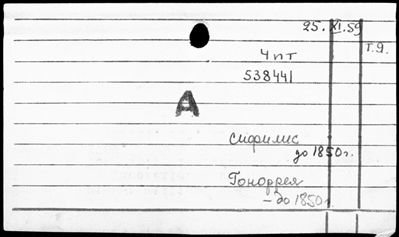 25.XI.59
т.9.
Чпт
538441
А
Сифилис
до 1850 г.
Гоноррея
– до 1850 г.